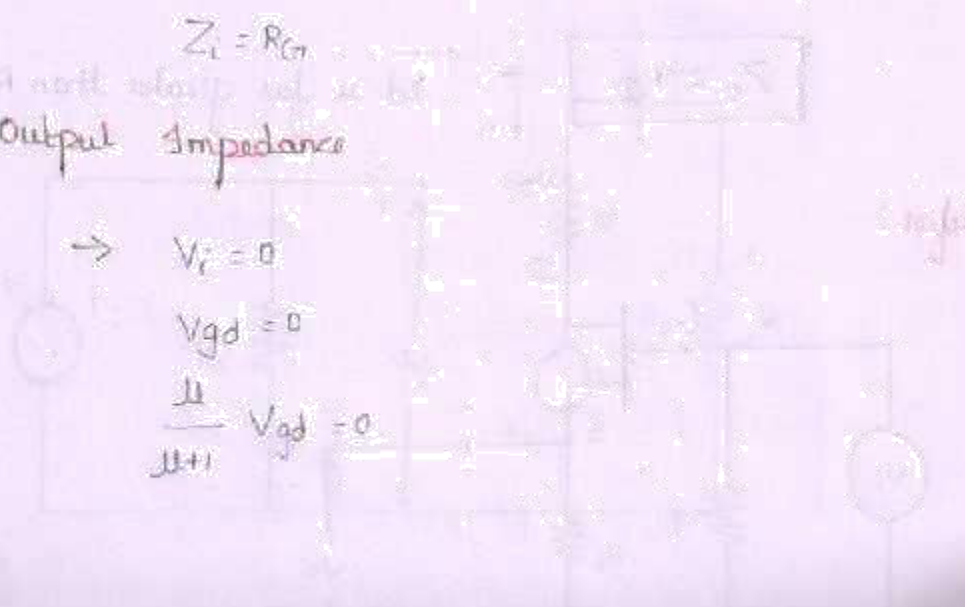 Zi = RG
Output Impedance
→ Vi = 0
Vgd = 0
μ/μ+1 Vgd = 0